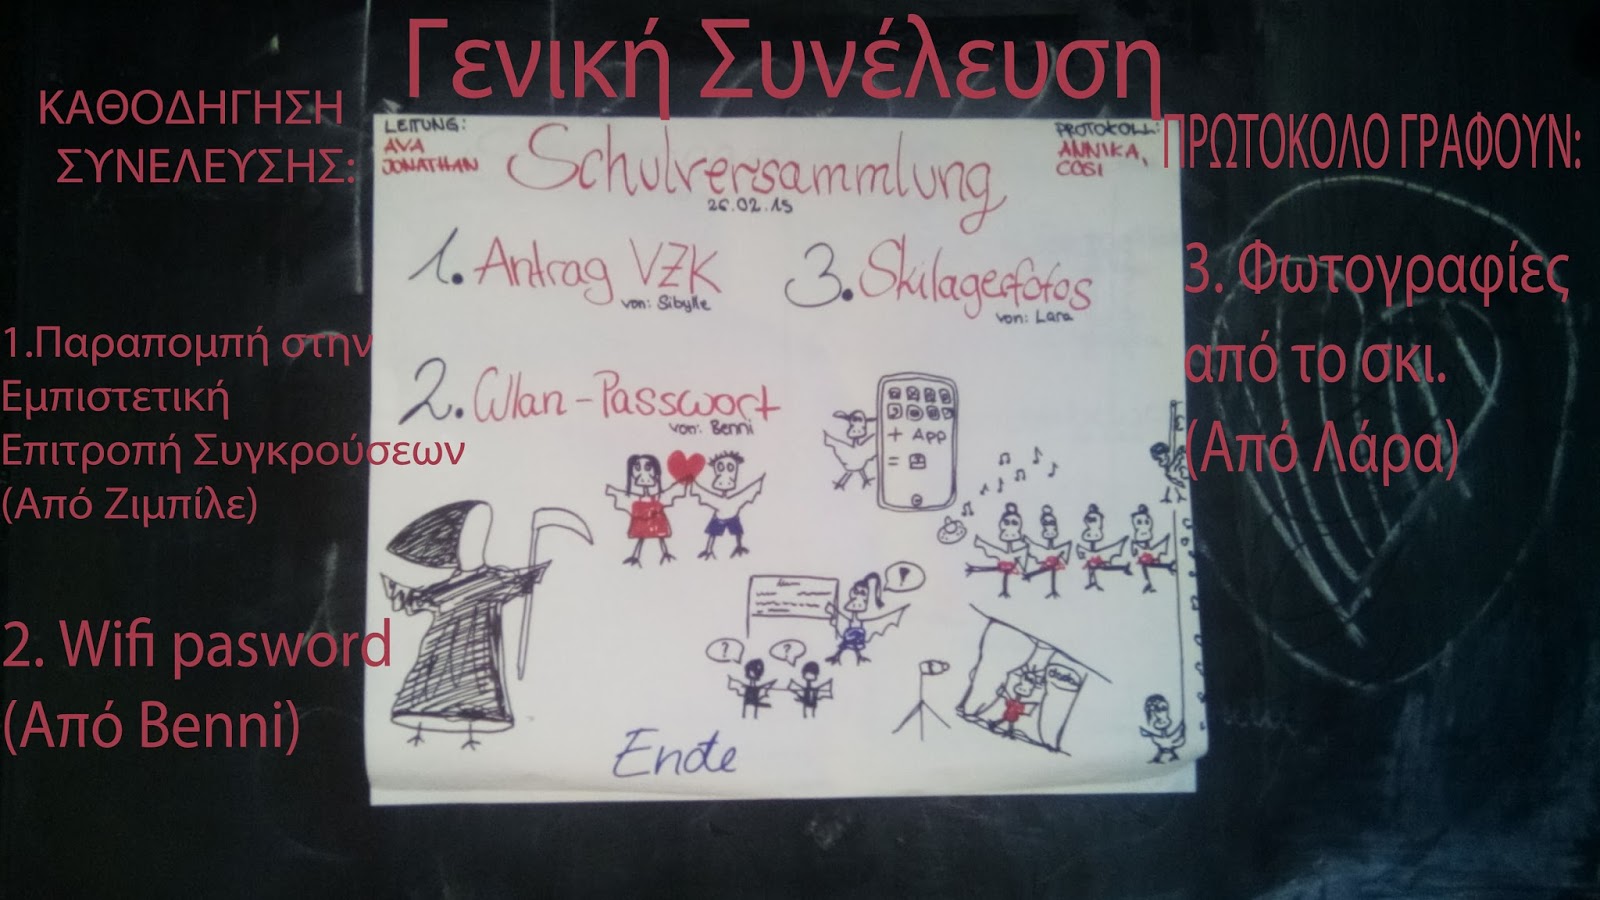 Γενική Συνέλευση
ΚΑΘΟΔΗΓΗΣΗ
ΣΥΝΕΛΕΥΣΗΣ:
ΠΡΩΤΟΚΟΛΟ ΓΡΑΦΟΥΝ:
LEITUNG:
AVA
JONATHAN
Schulversammlung
26.02.15
PROTOKOLL:
ANNIKA,
COSI
1. Antrag VZK
von: Sibylle
2. Wlan-Passwort
von: Benni
3. Skilagerfotos
von: Lara
+ App
=
?
?
!
Ende
1.Παραπομπή στην
Εμπιστετική
Επιτροπή Συγκρούσεων
(Από Ζιμπίλε)
2. Wifi pasword
(Από Benni)
3. Φωτογραφίες
από το σκι.
(Από Λάρα)